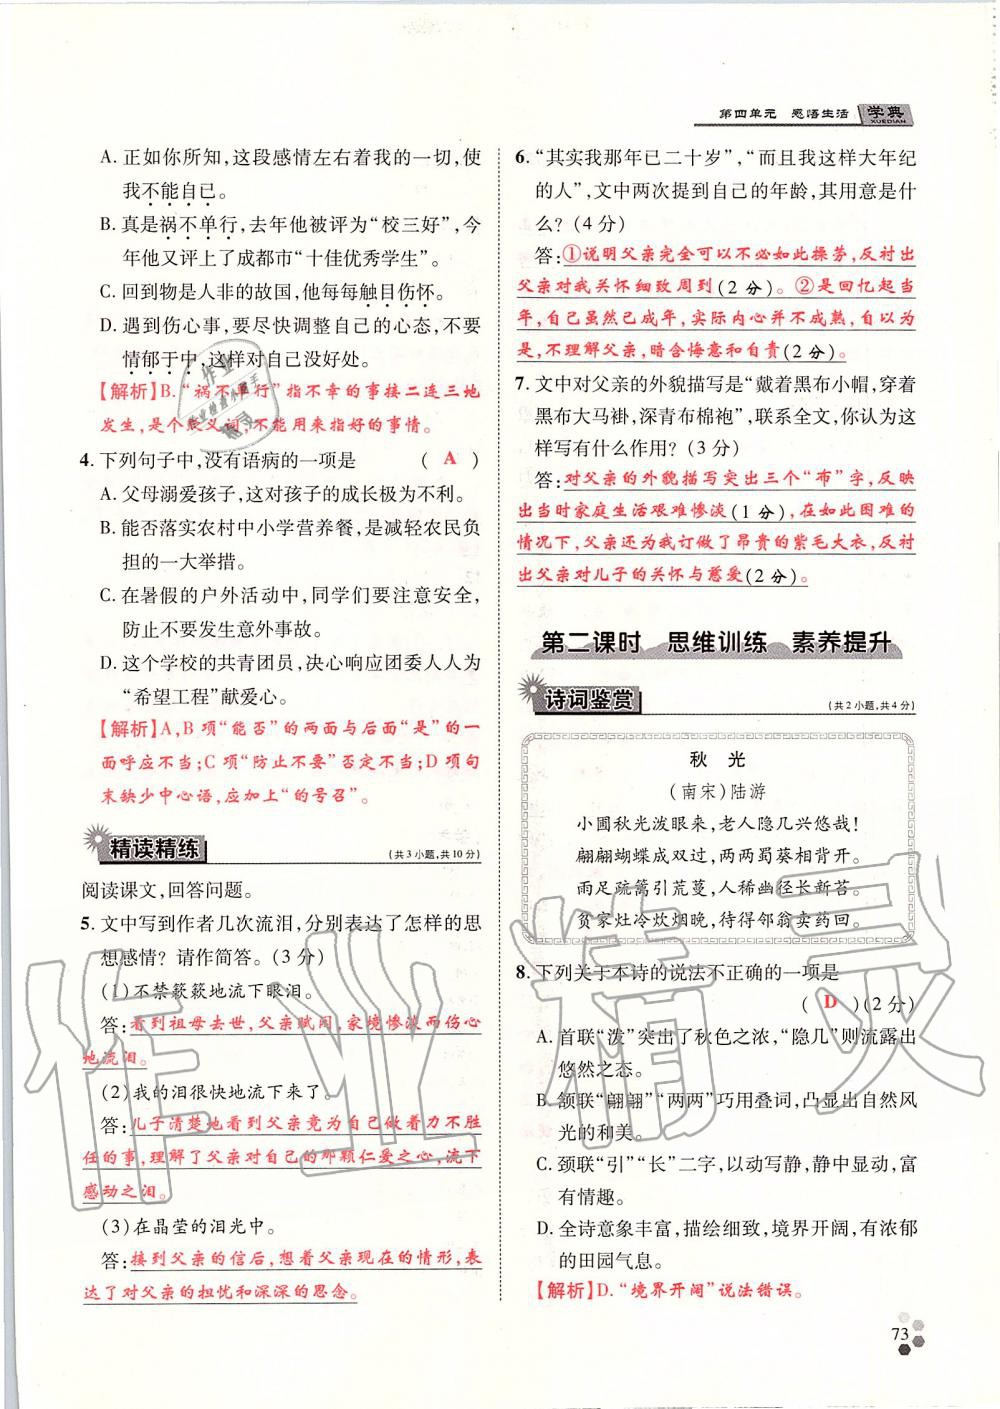 第四单元 感悟生活 学典
XUEDIAN
A. 正如你所知，这段感情左右着我的一切，使
我不能自已。
B. 真是祸不单行，去年他被评为“校三好”，今
年他又评上了成都市“十佳优秀学生”。
C. 回到物是人非的故国，他每每触目伤怀。
D. 遇到伤心事，要尽快调整自己的心态，不要
情郁于中，这样对自己没好处。
【解析】B.“祸不单行”指不幸的事接二连三地
发生，是个贬义词，不能用来指好的事情。
4. 下列句子中，没有语病的一项是 ( A )
A. 父母溺爱孩子，这对孩子的成长极为不利。
B. 能否落实农村中小学营养餐，是减轻农民负
担的一大举措。
C. 在暑假的户外活动中，同学们要注意安全，
防止不要发生意外事故。
D. 这个学校的共青团员，决心响应团委人人为
“希望工程”献爱心。
【解析】A，B 项“能否”的两面与后面“是”的一
面呼应不当；C 项“防止不要”否定不当；D 项句
末缺少中心语，应加上“的号召”。
精读精练 (共3小题，共10分)
阅读课文，回答问题。
5. 文中写到作者几次流泪，分别表达了怎样的思
想感情？请作简答。(3 分)
(1)不禁簌簌地流下眼泪。
答：看到祖母去世，父亲赋闲，家境惨淡而伤心
地流泪。
(2)我的泪很快地流下来了。
答：儿子清楚地看到父亲竟为自己做着力不胜
任的事，理解了父亲对自己的那颗仁爱之心，流下
感动之泪。
(3)在晶莹的泪光中。
答：接到父亲的信后，想着父亲现在的情形，表
达了对父亲的担忧和深深的思念。
6. “其实我那年已二十岁”，“而且我这样大年纪
的人”，文中两次提到自己的年龄，其用意是什
么？(4 分)
答：①说明父亲完全可以不必如此操劳，反衬出
父亲对我关怀细致周到(2 分)。②是回忆起当
年，自己虽然已成年，实际内心并不成熟，自以为
是，不理解父亲，暗含悔意和自责(2 分)。
7. 文中对父亲的外貌描写是“戴着黑布小帽，穿着
黑布大马褂，深青布棉袍”，联系全文，你认为这
样写有什么作用？(3 分)
答：对父亲的外貌描写突出三个“布”字，反映
出当时家庭生活艰难惨淡(1 分)，在如此困难的
情况下，父亲还为我订做了昂贵的紫毛大衣，反衬
出父亲对儿子的关怀与慈爱(2 分)。
第二课时 思维训练 素养提升
诗词鉴赏 (共2小题，共4分)
秋 光
(南宋)陆游
小圃秋光泼眼来，老人隐几兴悠哉！
翩翩蝴蝶成双过，两两蜀葵相背开。
雨足疏篱引荒蔓，人稀幽径长新苔。
贫家灶冷炊烟晚，待得邻翁卖药回。
8. 下列关于本诗的说法不正确的一项是
( D )(2 分)
A. 首联“泼”突出了秋色之浓，“隐几”则流露出
悠然之态。
B. 颔联“翩翩”“两两”巧用叠词，凸显出自然风
光的和美。
C. 颈联“引”“长”二字，以动写静，静中显动，富
有情趣。
D. 全诗意象丰富，描绘细致，境界开阔，有浓郁
的田园气息。
【解析】D.“境界开阔”说法错误。
73
作业精灵